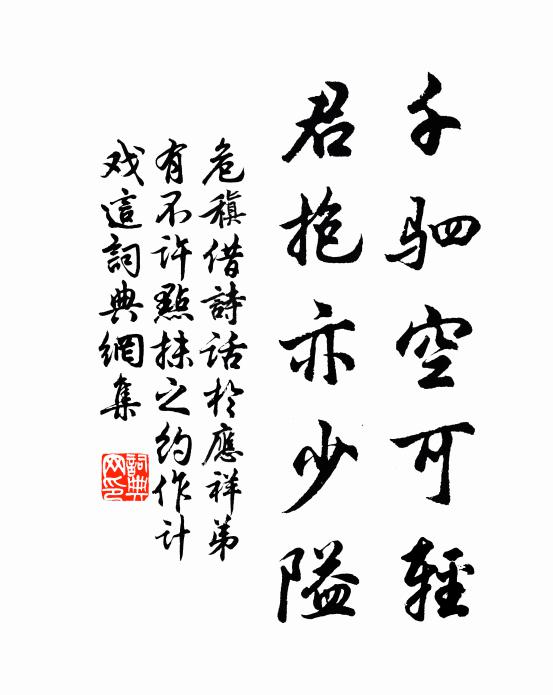 千驷空可輕
君抱亦少隘
危稹借詩话於應祥弟
有不许點抹之约作计
戏這詞典網集
詞典网印